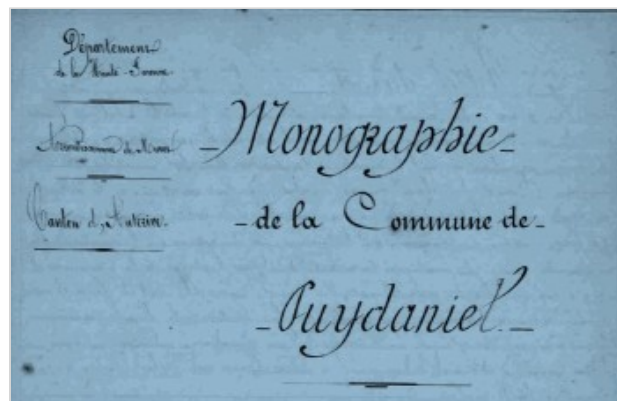 Département
de la Haute-Garonne.
Arrondissement de Muret
Canton d'Auterive.
- Monographie -
- de la Commune de -
- Puydaniel. -